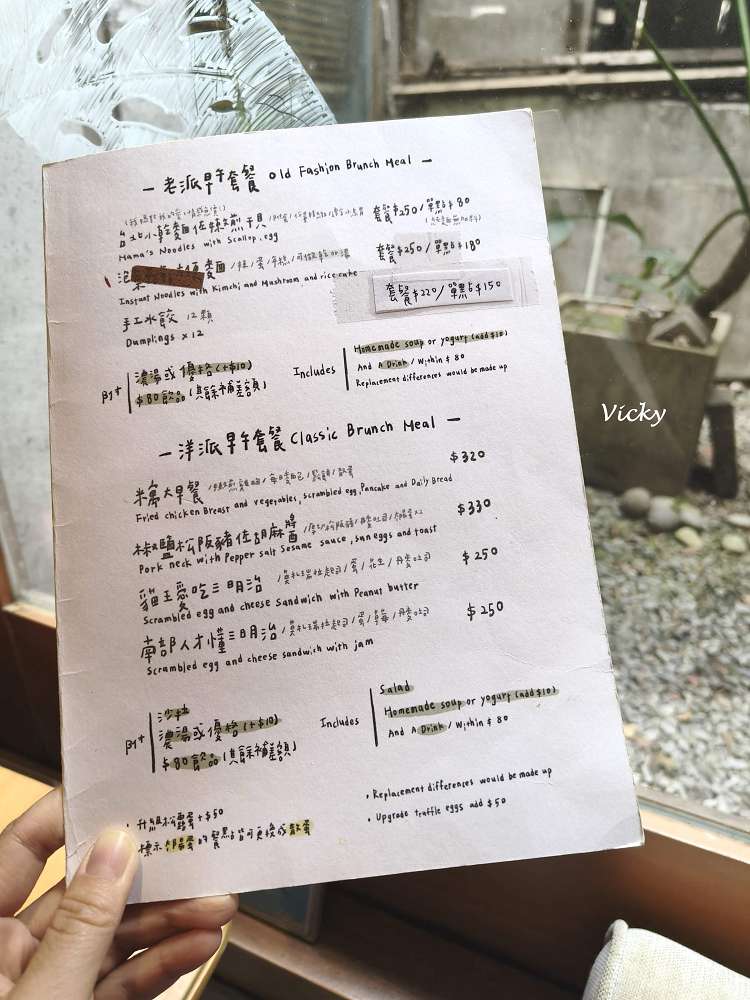 — 老派早午套餐 Old Fashion Brunch Meal —
台北小乾麵佐辣煎干貝
套餐$250/單點$180
Mama's Noodles with Scallop, egg
麵
套餐$250/單點$180
Instant Noodles with Kimchi and Mushroom and rice cake
套餐$220/單點$150
手工水餃 12顆
Dumplings x 12
附+
濃湯或優格(+$10)
$80飲品(其餘補差額)
Includes
Homemade soup or yogurt (add $10)
And A Drink / Within $ 80
Replacement differences would be made up
— 洋派早午套餐 Classic Brunch Meal —
米寓大早餐
$320
Fried chicken Breast and vegetables, scrambled egg, Pancake and Daily Bread
椒鹽松阪豬佐胡麻醬
$330
Pork neck with Pepper salt Sesame sauce, sun eggs and toast
貓王愛吃三明治 /莫札瑞拉起司/蛋/花生/丹麥吐司
$250
Scrambled egg and cheese Sandwich with Peanut butter
南部人才懂三明治 /莫札瑞拉起司/蛋/草莓/丹麥吐司
$250
Scrambled egg and cheese sandwich with jam
附+
沙拉
濃湯或優格(+$10)
$80飲品(其餘補差額)
Includes
Salad
Homemade soup or yogurt (add $10)
And A Drink / Within $ 80
• 升級松露蛋+$50
標示太陽蛋的餐點皆可更換成散蛋
• Replacement differences would be made up
• Upgrade truffle eggs add $50
Vicky